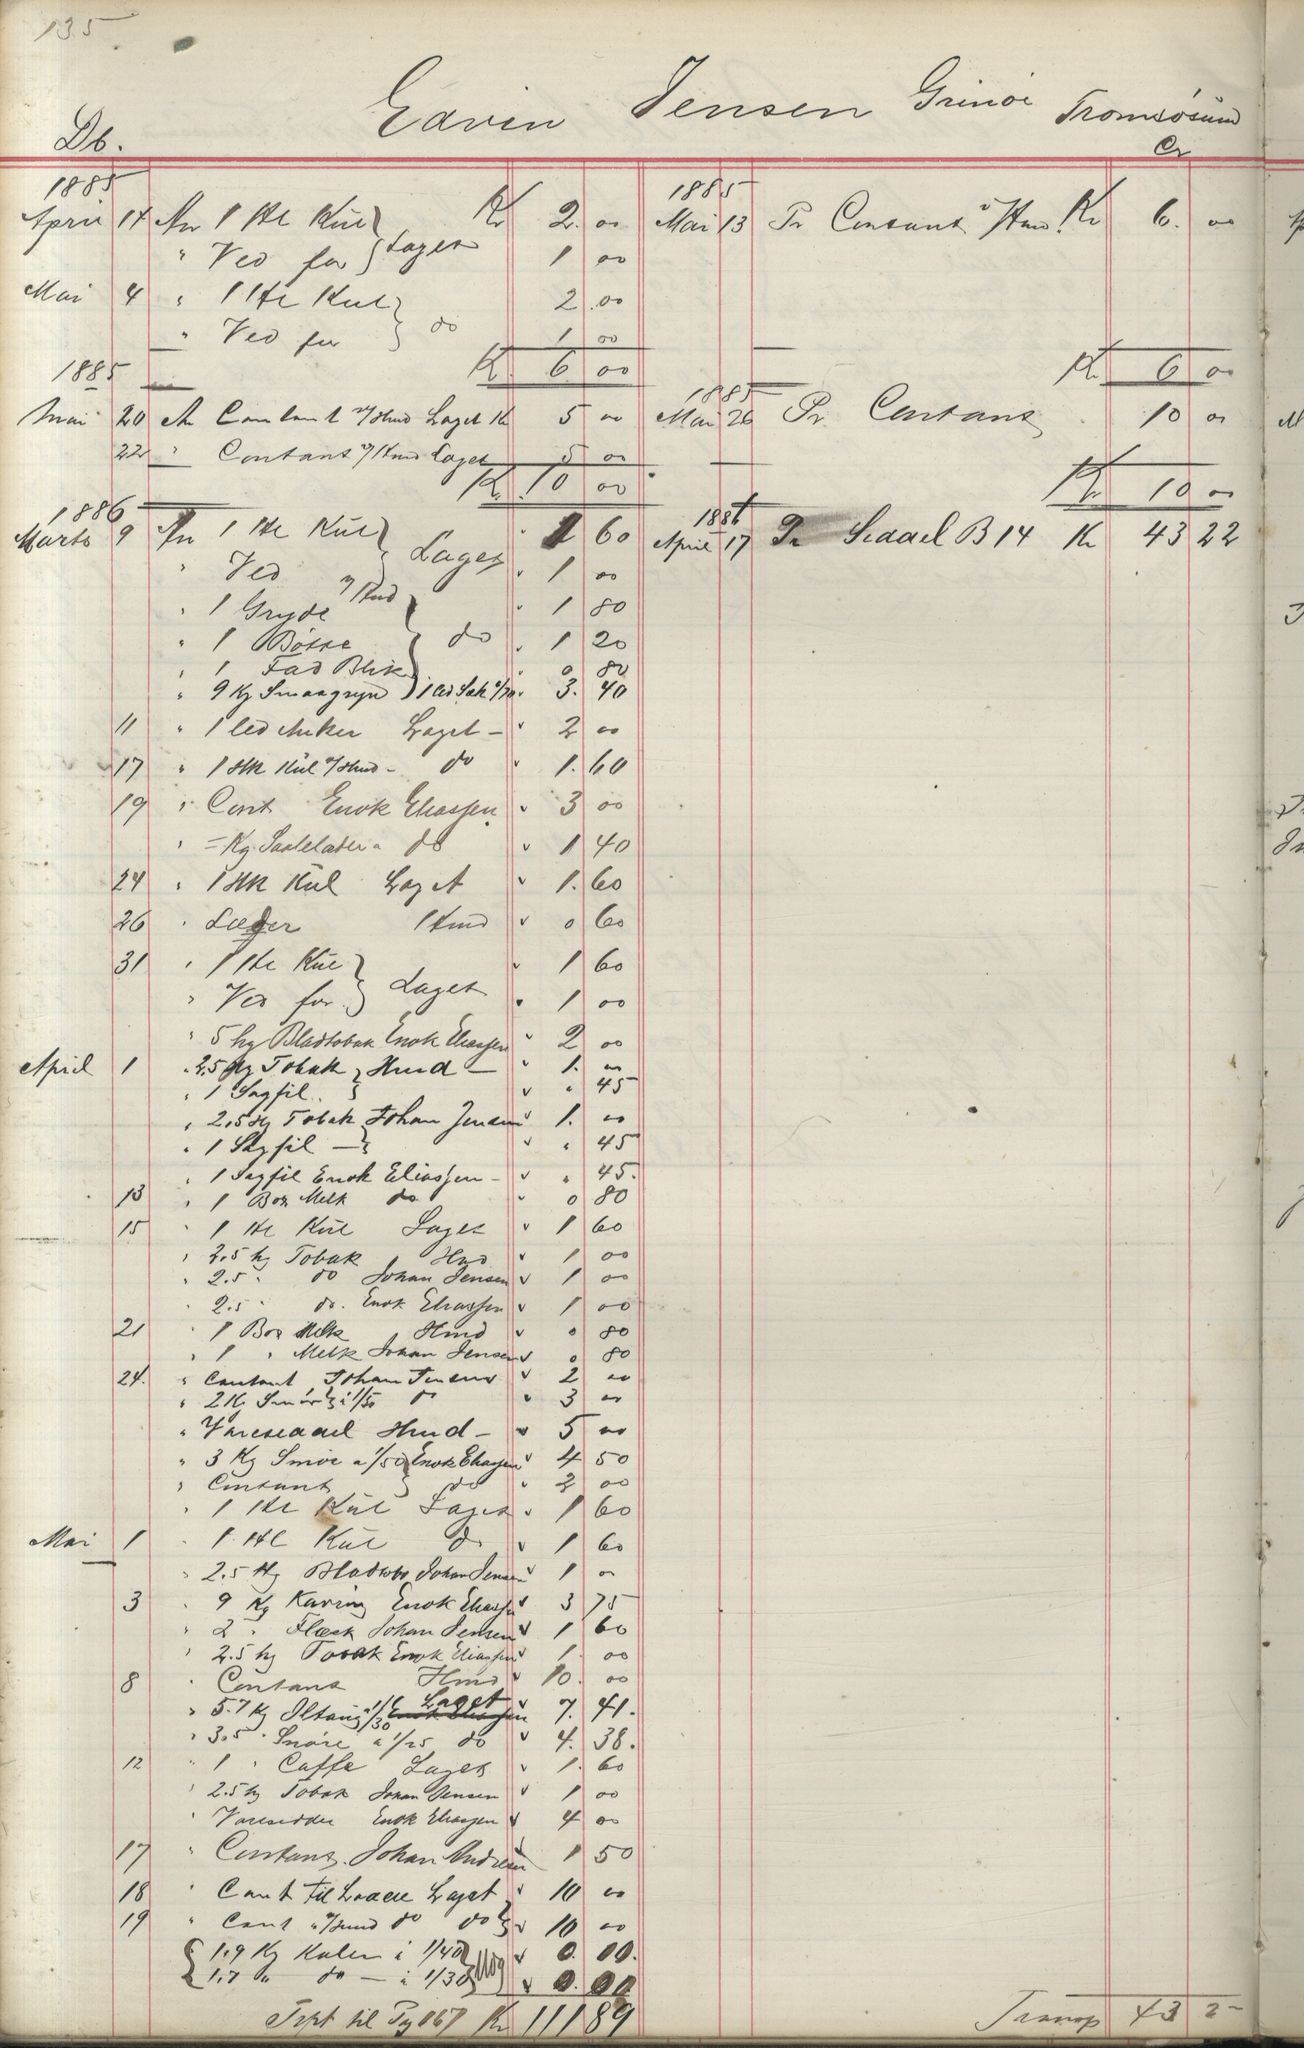 135
Edvin Jensen Grinöi Tromsösund
Db. Cr
1885
April 14 An 1 Hl Kul } Laget Kr 2. 00
" Ved for 1 00
Mai 4 " 1 Hl Kul } do 2 00
" Ved for 1 00
Kr 6 00
1885
Mai 13 Pr Contant v/Hmd. Kr 6. 00
Kr 6 00
1885
Mai 20 An Contant v/Hmd Laget Kr 5 00
22 " Contant v/Hmd Laget 5 00
Kr. 10 00
1885
Mai 26 Pr Contant 10 00
Kr 10 00
1886
Marts 9 An 1 Hl Kul } Laget " 1 60
" Ved v/Hmd " 1 00
" 1 Gryde } do " 1 80
" 1 Bösse " 1 20
" 1 Fad Blik " 0 80
" 9 Kg Smaagryn 3. 40
11 " 1 led Anker Laget - " 2 00
17 " 1 Hk Kul v/Hmd - do " 1. 60
19 " Cont Enok Eliassen " 3 00
Kg Saaleläder do " 1 40
24 " 1 Hk Kul Laget " 1. 60
26 " Læder Hmd " 0 60
31 " 1 Hl Kul } Laget " 1 60
" Ved for " 1 00
" 5 hg Bladtobak Enok Eliassen " 2 00
April 1 " 2.5 Hg Tobak } Hmd - " 1. 00
" 1 Sagfil. " " 45
" 2.5 Hg Tobak Johan Jensen " 1. 00
" 1 Sagfil - " " 45
" 1 Sagfil Enok Eliassen - " " 45.
13 " 1 Box Melk do " 0 80
15 " 1 Hl Kul Laget " 1 60
" 2.5 hg Tobak Hmd " 1 00
" 2.5 " do Johan Jensen " 1 00
" 2.5 " do. Enok Eliassen " 1 00
21 " 1 Box Melk Hmd " 0 80
" 1 " Melk Johan Jensen " 0 80
24. " Contant Johan Jensen " 2 00
" 2 K. Smör à 1/50 do " 3 00
" Vareseddel Hmd - " 5 00
" 3 Kg Smör a 1/50 } Enok Eliassen " 4 50
" Contant do " 2 00
" 1 Hl Kul Laget " 1 60
Mai 1 " 1 Hl Kul do " 1 60
" 2.5 Hg Bladtob Johan Jensen " 1 00
3 " 9 Kg Kavring Enok Eliassen " 3 75
" 2 " Flæsk Johan Jensen " 1 60
" 2.5 hg Tobak Enok Eliassen " 1 00
8 " Contant Hmd " 10. 00
" 5.7 Kg a 1/30 Laget Enok Eliassen " 7. 41.
" 3.5 " Snöre a 1/25 do " 4. 38.
12 " 1 " Caffe Laget " 1. 60
" 2.5 hg Tobak Johan Jensen " 1 00
" Vareseddel Enok Eliassen " 4 00
17 " Contant. Johan Andresen " 1 50
18 " Cont til Laget " 10 00
19 " Cont v/Hmd do do " 10 00
{ 1.9 Kg à 1/40 " 0. 00.
{ 1.7 " do - à 1/30 " 0. 00
Trpt til Pg 167 Kr 111 89
1886
April 17 Pr Seddel B 14 Kr 43 22
Transp 43 2